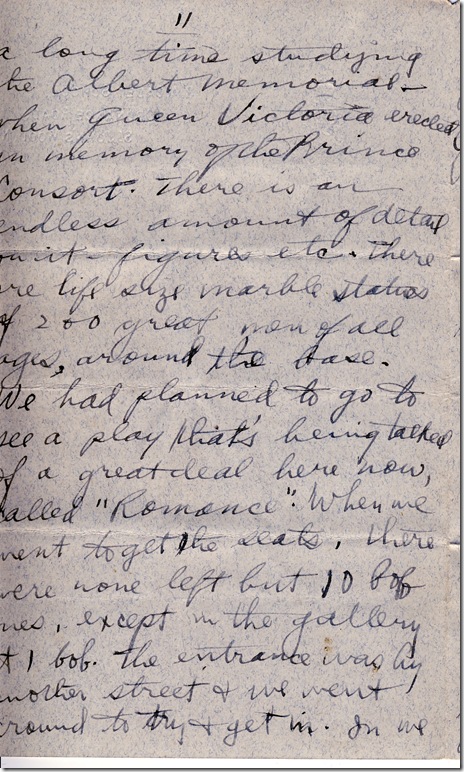 11
a long time studying
he Albert Memorial -
when Queen Victoria erected
in memory of the Prince
Consort. There is an
endless amount of detail
on it - figures etc. There
are life size marble statues
of 200 great men of all
ages, around the base.
We had planned to go to
see a play that's being talked
of a great deal here now,
called "Romance". When we
went to get the seats, there
were none left but 10 bob
ones, except in the gallery
at 1 bob. The entrance was by
another street & we went
around to try & get in. In we